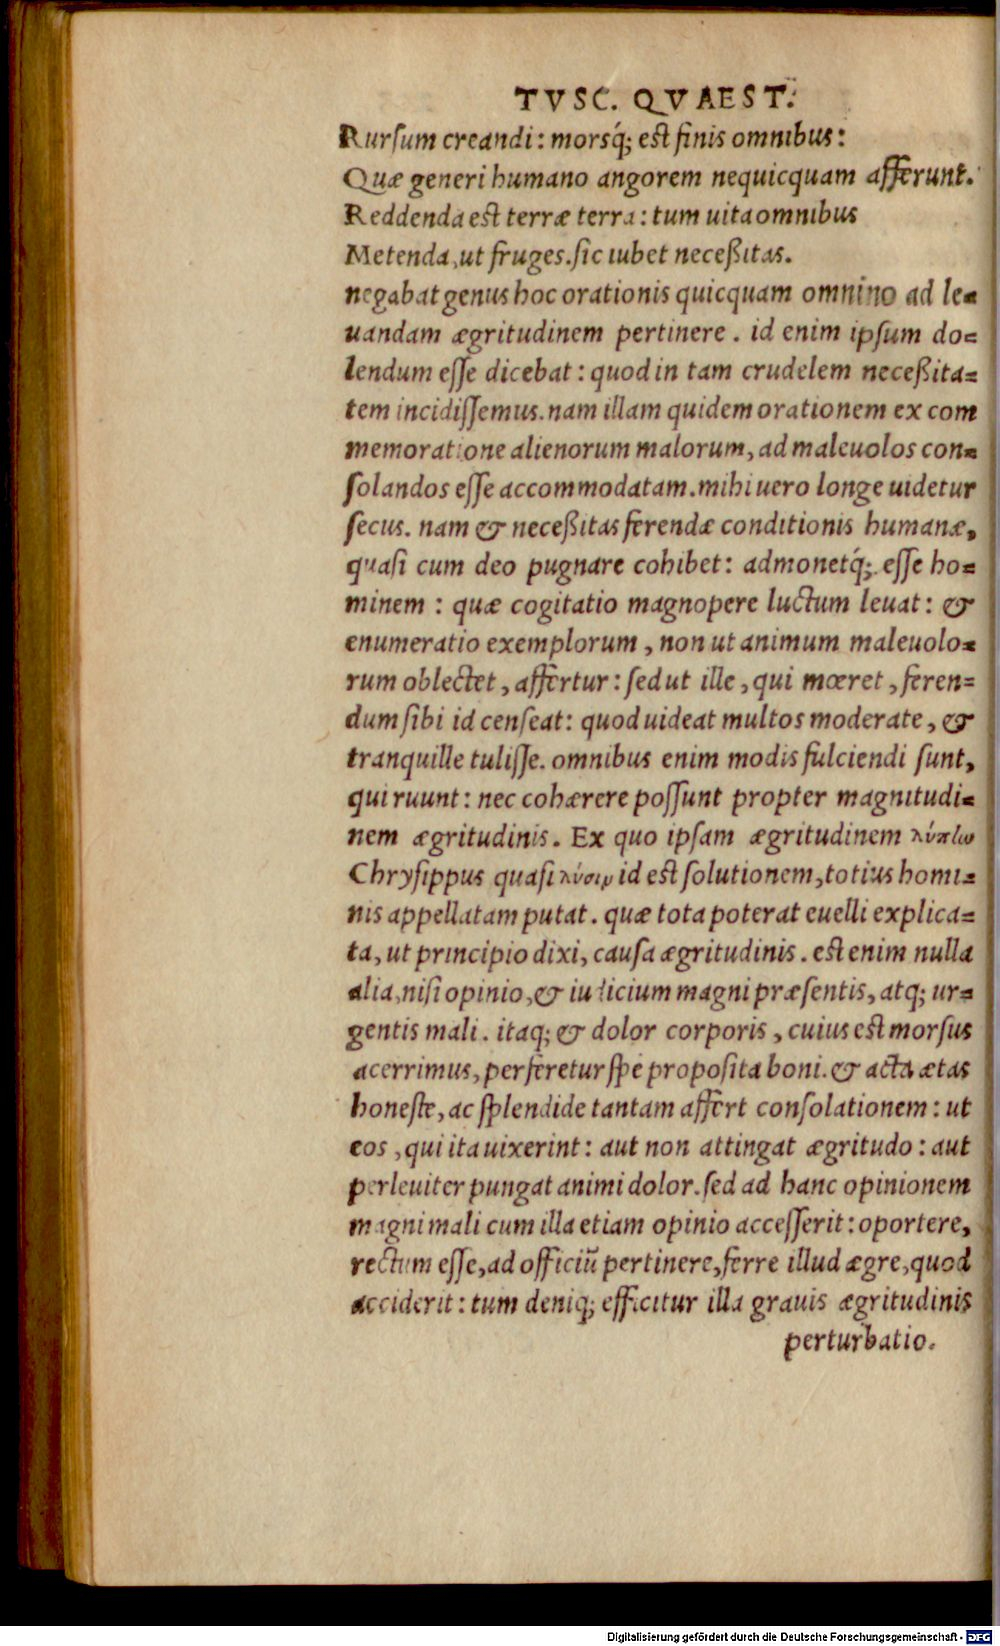 TVSC. QVAEST.
Rursum creandi: morsq́; est finis omnibus:
Quæ generi humano angorem nequicquam afferunt.
Reddenda est terræ terra: tum uita omnibus
Metenda, ut fruges. sic iubet neceßitas.
negabat genus hoc orationis quicquam omnino ad le-
uandam ægritudinem pertinere. id enim ipsum do-
lendum esse dicebat: quod in tam crudelem neceßita-
tem incidissemus. nam illam quidem orationem ex com
memoratione alienorum malorum, ad maleuolos con-
solandos esse accommodatam. mihi uero longe uidetur
secus. nam & neceßitas ferendæ conditionis humanæ,
quasi cum deo pugnare cohibet: admonetq́;. esse ho-
minem: quæ cogitatio magnopere luctum leuat: &
enumeratio exemplorum, non ut animum maleuolo-
rum oblectet, affertur: sed ut ille, qui mœret, feren-
dum sibi id censeat: quod uideat multos moderate, &
tranquille tulisse. omnibus enim modis fulciendi sunt,
qui ruunt: nec cohærere possunt propter magnitudi-
nem ægritudinis. Ex quo ipsam ægritudinem λύπlω
Chrysippus quasi λύσιμ id est solutionem, totius homi-
nis appellatam putat. quæ tota poterat euelli explica-
ta, ut principio dixi, causa ægritudinis. est enim nulla
alia, nisi opinio, & iudicium magni præsentis, atq; ur-
gentis mali. itaq; & dolor corporis, cuius est morsus
acerrimus, perferetur spe proposita boni. & acta ætas
honeste, ac splendide tantam affert consolationem: ut
eos, qui ita uixerint: aut non attingat ægritudo: aut
perleuiter pungat animi dolor. sed ad hanc opinionem
magni mali cum illa etiam opinio accesserit: oportere,
rectum esse, ad officiū pertinere, ferre illud ægre, quod
acciderit: tum deniq; efficitur illa grauis ægritudinis
perturbatio.
Digitalisierung gefördert durch die Deutsche Forschungsgemeinschaft - DFG